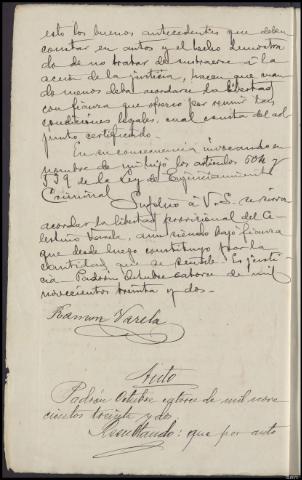 esto los buenos antecedentes que deben
constar en autos y el hecho demostra
do de no tratar de sustraerse a la
acción de la justicia, hacen que cuan
do menos deba acordarse la libertad
con fianza que ofrezco por reunir las
condiciones legales, cual consta del ad
junto certificado.
En su consecuencia invocando en
nombre de mi hijo los artículos 504 y
529 de la Ley de Enjuiciamiento
Criminal
Suplico a V.S. se sirva
acordar la libertad provisional del Ce
lestino Varela, aun siendo bajo fianza
que desde luego constituyo por la
cantidad que se señale. Es justi
cia. Padrón Octubre catorce de mil
novecientos treinta y dos.
Ramon Varela
Auto
Padrón Octubre catorce de mil nove
cientos treinta y dos
Resultando: que por auto